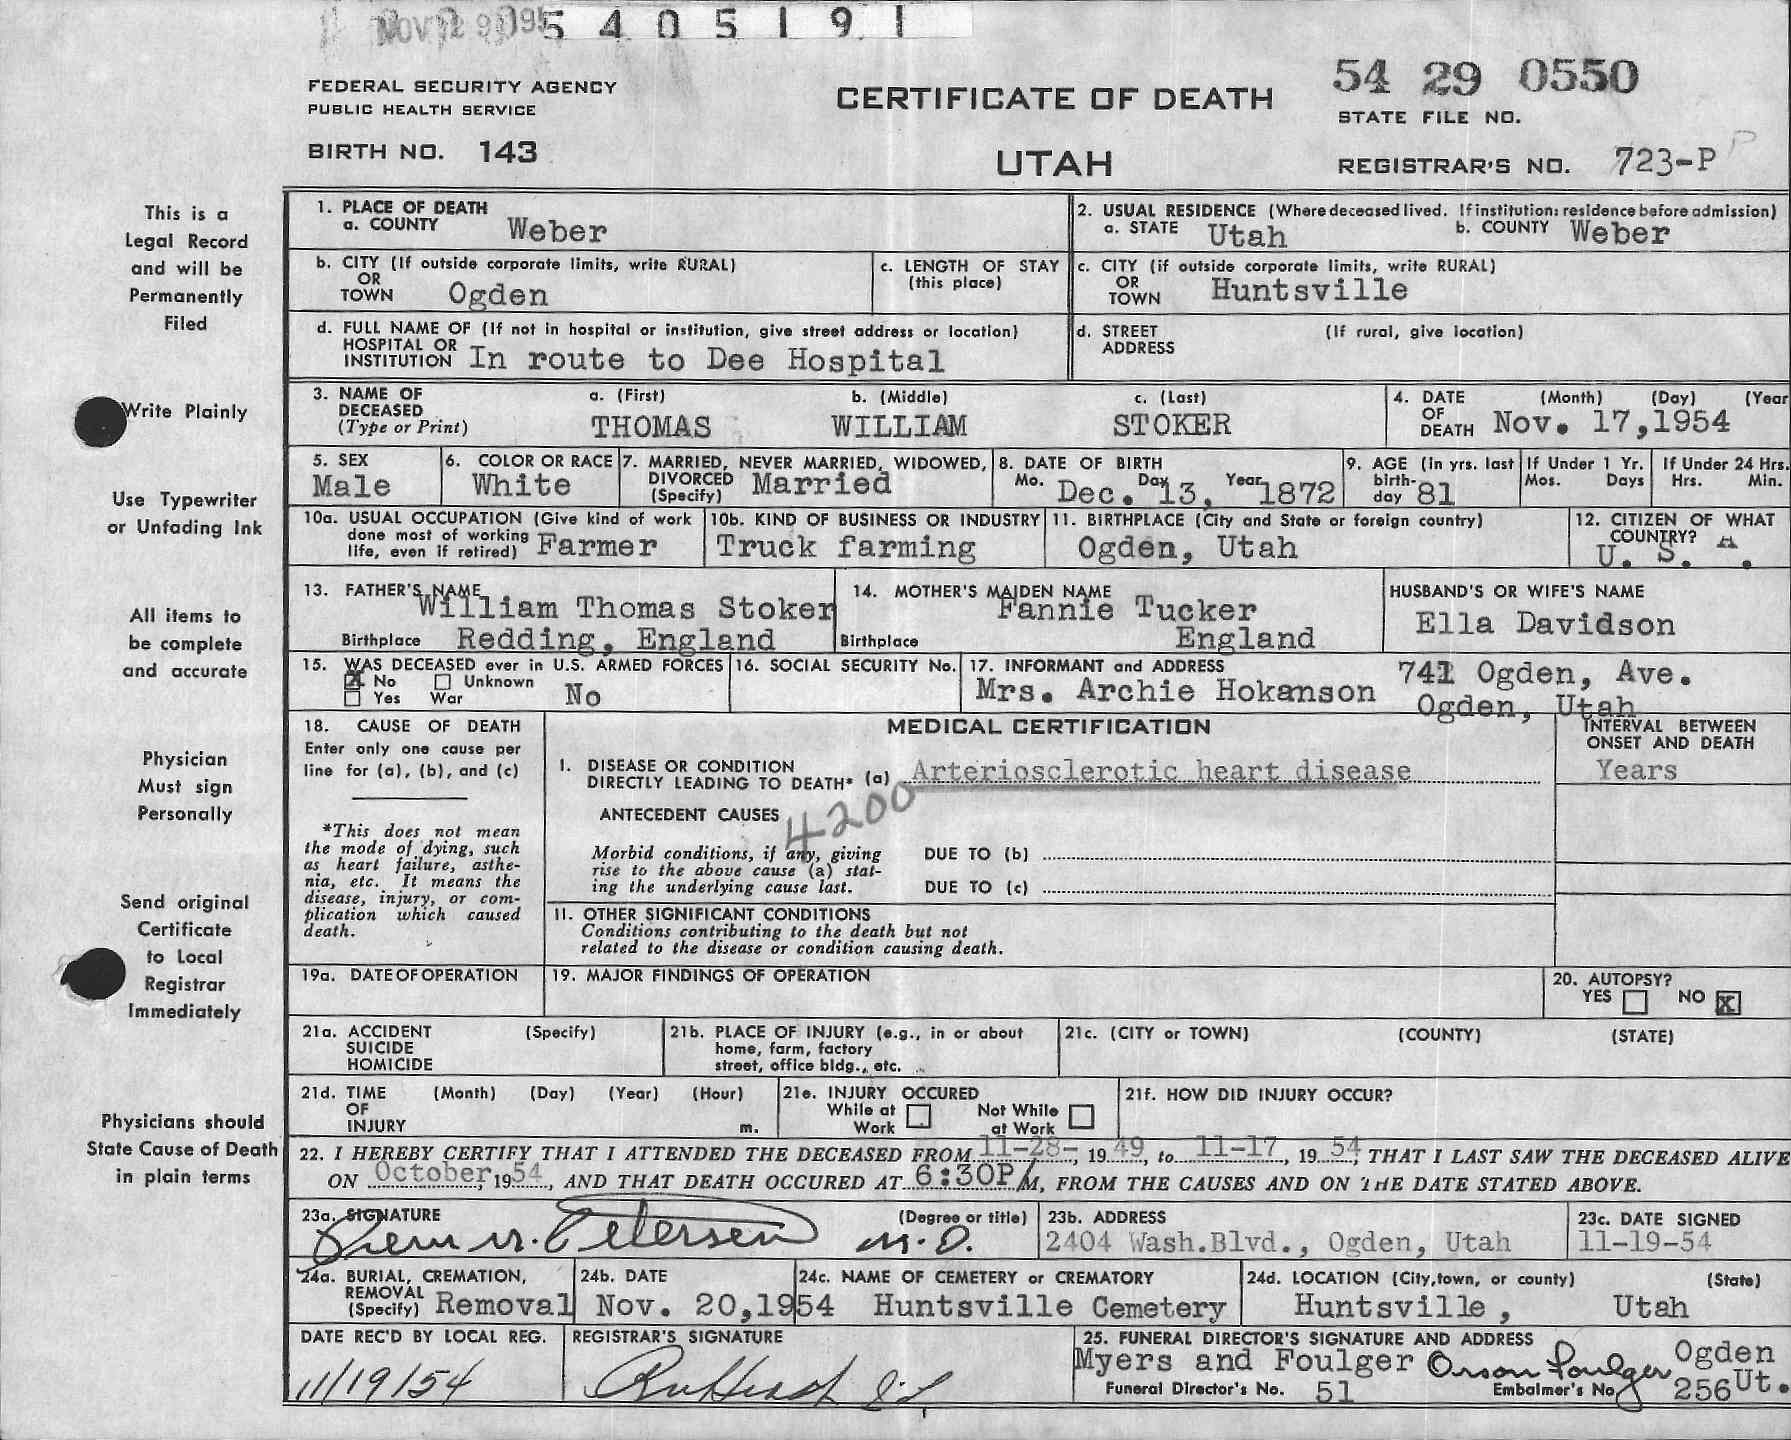 NOV 29 195
5 4 0 5 1 9 1
54 29 0550
FEDERAL SECURITY AGENCY
PUBLIC HEALTH SERVICE
CERTIFICATE OF DEATH
STATE FILE NO.
BIRTH NO. 143
UTAH
REGISTRAR'S NO. 723-P P
This is a
Legal Record
and will be
Permanently
Filed
Write Plainly
Use Typewriter
or Unfading Ink
All items to
be complete
and accurate
Physician
Must sign
Personally
Send original
Certificate
to Local
Registrar
Immediately
Physicians should
State Cause of Death
in plain terms
1. PLACE OF DEATH
a. COUNTY Weber
2. USUAL RESIDENCE (Where deceased lived. If institution: residence before admission)
a. STATE Utah b. COUNTY Weber
b. CITY (If outside corporate limits, write RURAL)
OR
TOWN Ogden
c. LENGTH OF STAY
(this place)
c. CITY (if outside corporate limits, write RURAL)
OR
TOWN Huntsville
d. FULL NAME OF (If not in hospital or institution, give street address or location)
HOSPITAL OR
INSTITUTION In route to Dee Hospital
d. STREET (If rural, give location)
ADDRESS
3. NAME OF
DECEASED
(Type or Print)
a. (First) b. (Middle) c. (Last)
THOMAS WILLIAM STOKER
4. DATE (Month) (Day) (Year
OF
DEATH Nov. 17,1954
5. SEX
Male
6. COLOR OR RACE
White
7. MARRIED, NEVER MARRIED, WIDOWED,
DIVORCED
(Specify) Married
8. DATE OF BIRTH
Mo. Day Year
Dec. 13, 1872
9. AGE (In yrs. last
birth-
day 81
If Under 1 Yr.
Mos. Days
If Under 24 Hrs.
Hrs. Min.
10a. USUAL OCCUPATION (Give kind of work
done most of working
life, even if retired) Farmer
10b. KIND OF BUSINESS OR INDUSTRY
Truck farming
11. BIRTHPLACE (City and State or foreign country)
Ogden, Utah
12. CITIZEN OF WHAT
COUNTRY?
U. S. A.
13. FATHER'S NAME
William Thomas Stoker
Birthplace Redding, England
14. MOTHER'S MAIDEN NAME
Fannie Tucker
Birthplace England
HUSBAND'S OR WIFE'S NAME
Ella Davidson
15. WAS DECEASED ever in U.S. ARMED FORCES
X No Unknown
Yes War No
16. SOCIAL SECURITY No.
17. INFORMANT and ADDRESS
Mrs. Archie Hokanson
741 Ogden, Ave.
Ogden, Utah
18. CAUSE OF DEATH
Enter only one cause per
line for (a), (b), and (c)
*This does not mean
the mode of dying, such
as heart failure, asthe-
nia, etc. It means the
disease, injury, or com-
plication which caused
death.
MEDICAL CERTIFICATION
INTERVAL BETWEEN
ONSET AND DEATH
I. DISEASE OR CONDITION
DIRECTLY LEADING TO DEATH* (a) Arteriosclerotic heart disease
Years
ANTECEDENT CAUSES
4200
Morbid conditions, if any, giving
rise to the above cause (a) stat-
ing the underlying cause last.
DUE TO (b)
DUE TO (c)
II. OTHER SIGNIFICANT CONDITIONS
Conditions contributing to the death but not
related to the disease or condition causing death.
19a. DATE OF OPERATION
19. MAJOR FINDINGS OF OPERATION
20. AUTOPSY?
YES NO X
21a. ACCIDENT (Specify)
SUICIDE
HOMICIDE
21b. PLACE OF INJURY (e.g., in or about
home, farm, factory
street, office bldg., etc.
21c. (CITY or TOWN) (COUNTY) (STATE)
21d. TIME (Month) (Day) (Year) (Hour)
OF
INJURY m.
21e. INJURY OCCURED
While at Work
Not While at Work
21f. HOW DID INJURY OCCUR?
22. I HEREBY CERTIFY THAT I ATTENDED THE DECEASED FROM 11-28-, 19 49, to 11-17, 19 54, THAT I LAST SAW THE DECEASED ALIVE
ON October, 19 54, AND THAT DEATH OCCURED AT 6:30P M, FROM THE CAUSES AND ON THE DATE STATED ABOVE.
23a. SIGNATURE (Degree or title)
Petersen M.D.
23b. ADDRESS
2404 Wash.Blvd., Ogden, Utah
23c. DATE SIGNED
11-19-54
24a. BURIAL, CREMATION,
REMOVAL
(Specify) Removal
24b. DATE
Nov. 20,1954
24c. NAME OF CEMETERY or CREMATORY
Huntsville Cemetery
24d. LOCATION (City,town, or county) (State)
Huntsville, Utah
DATE REC'D BY LOCAL REG.
11/19/54
REGISTRAR'S SIGNATURE
25. FUNERAL DIRECTOR'S SIGNATURE AND ADDRESS
Myers and Foulger Orson Foulger Ogden
Ut.
Funeral Director's No. 51 Embalmer's No 256